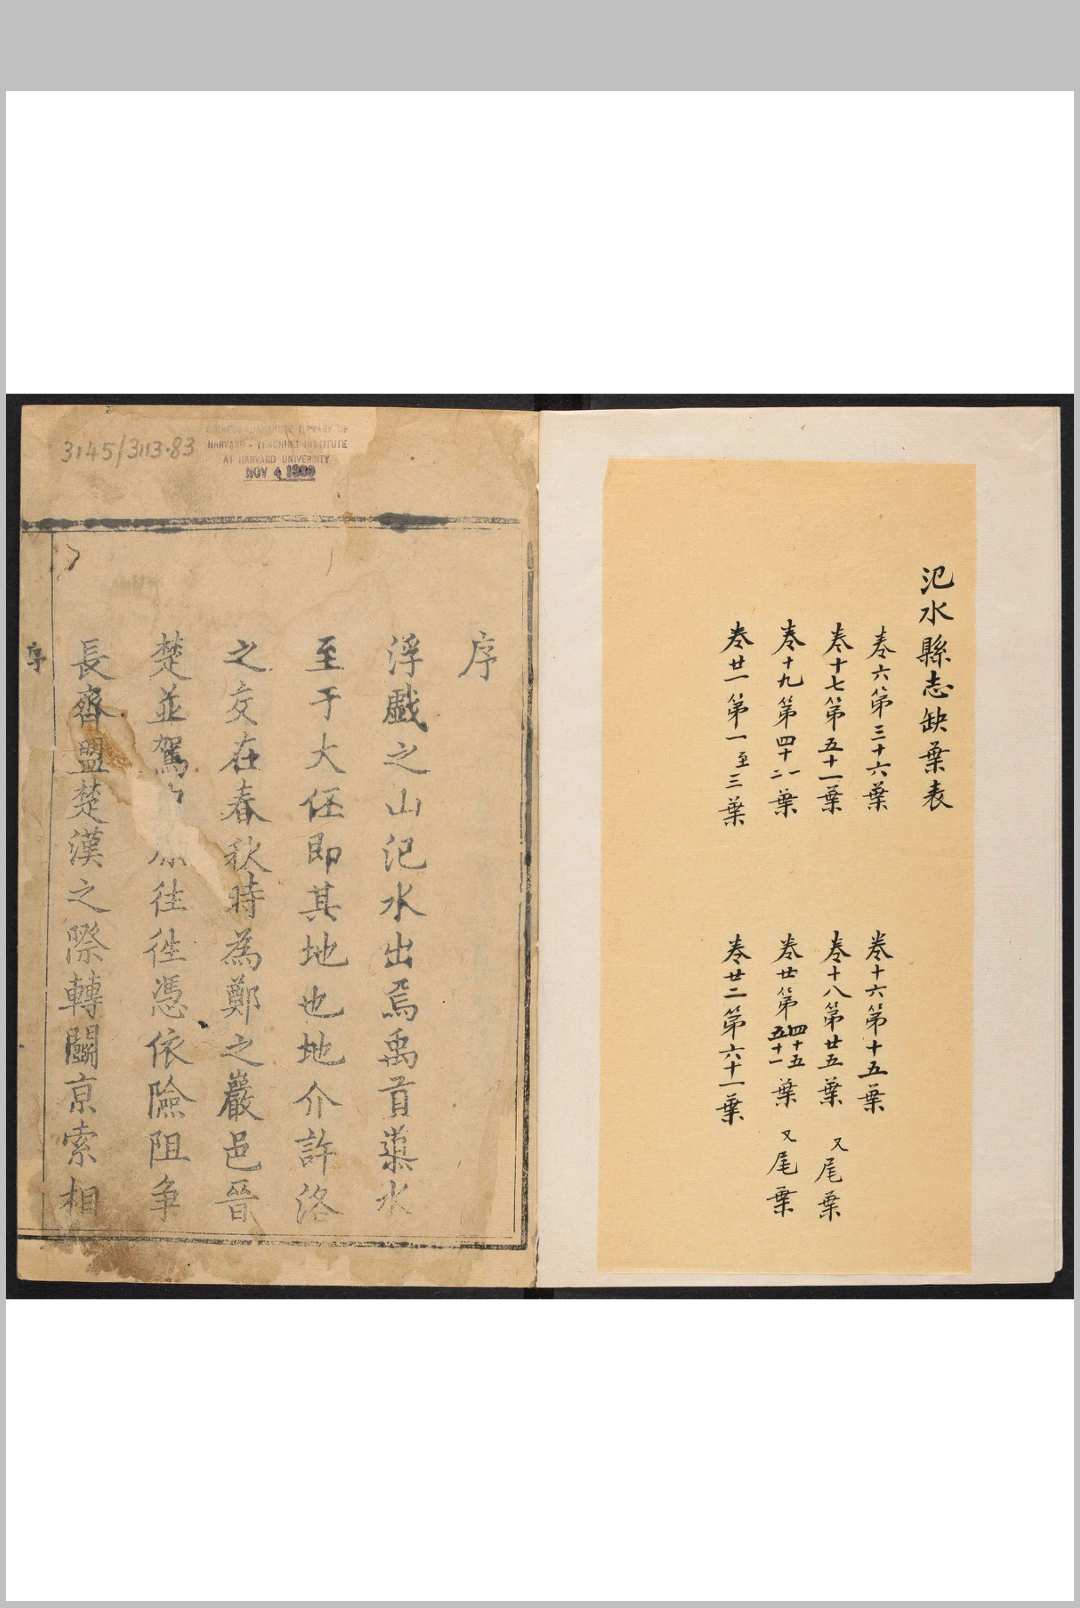 汜水縣志缺葉表
卷六第三十六葉
卷十六第十五葉
卷十七第五十一葉
卷十八第廿五葉 又尾葉
卷十九第四十一二葉
卷廿第四十五五十一葉 又尾葉
卷廿一第一至三葉
卷廿二第六十一葉
3145/3113.83
HARVARD-YENCHING INSTITUTE
AT HARVARD UNIVERSITY
NOV 4
序
浮戲之山汜水出焉禹首導水
至于大伾即其地也地介許洛
之交在春秋時為鄭之巖邑晉
楚並駕原往往憑依險阻争
長齊盟楚漢之際轉鬭京索相
序